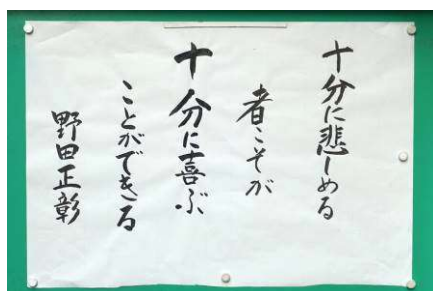 十分に悲しめる
者こそが
十分に喜ぶ
ことができる
野田正彰